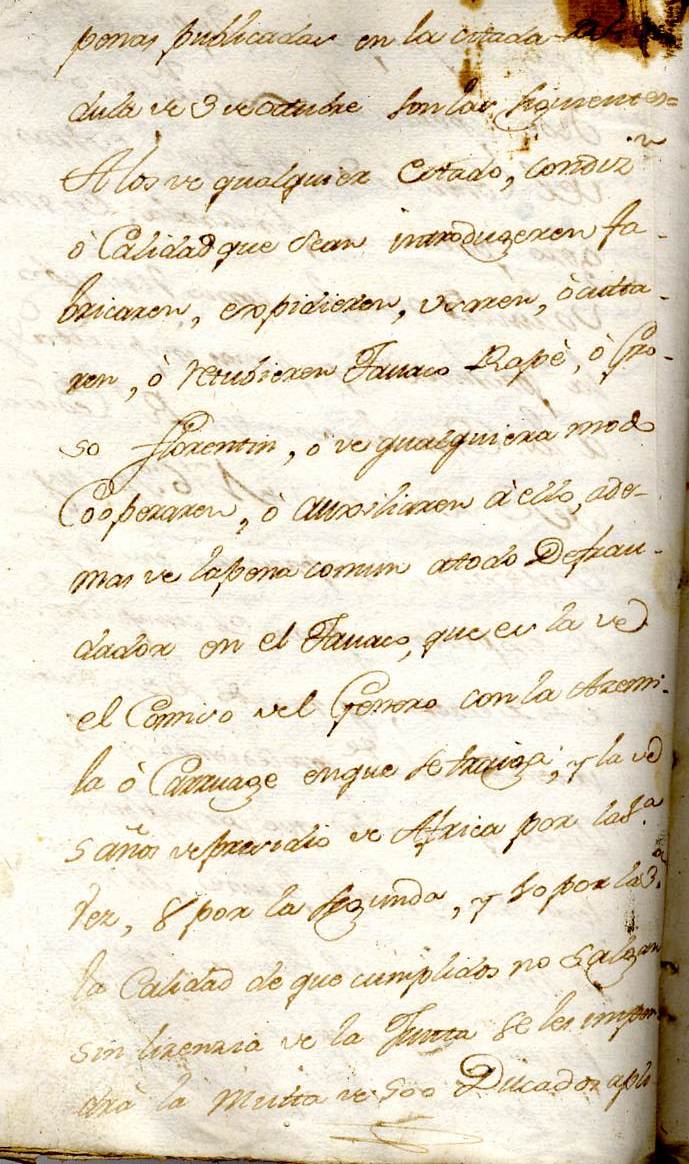 penas publicadas en la citada
dula de 3 de octubre son las siguientes=
A los de qualquier Estado, condiz.n
ò Calidad que sean introdugeren fa-
bricaren, expidieren, usaren,
ren, ò retubieren Tavaco Rapè, ò Gro-
so florentin, o de qualquiera modo
Cooperaren, ò auxiliaren à ello, ade-
mas de la pena comun a todo Defrau-
dador en el Tavaco, que es la de
el Comiso del Genero con la Azemi-
la ò Carruage en que se traiga; y la de
5 años de presidio de Africa por la 1.a
vez, 8 por la segunda, y 10 por la 3.a
la Calidad de que cumplidos no salgan
sin lizenzia de la Junta se les impon
drà la Multa de 500 Ducados apli